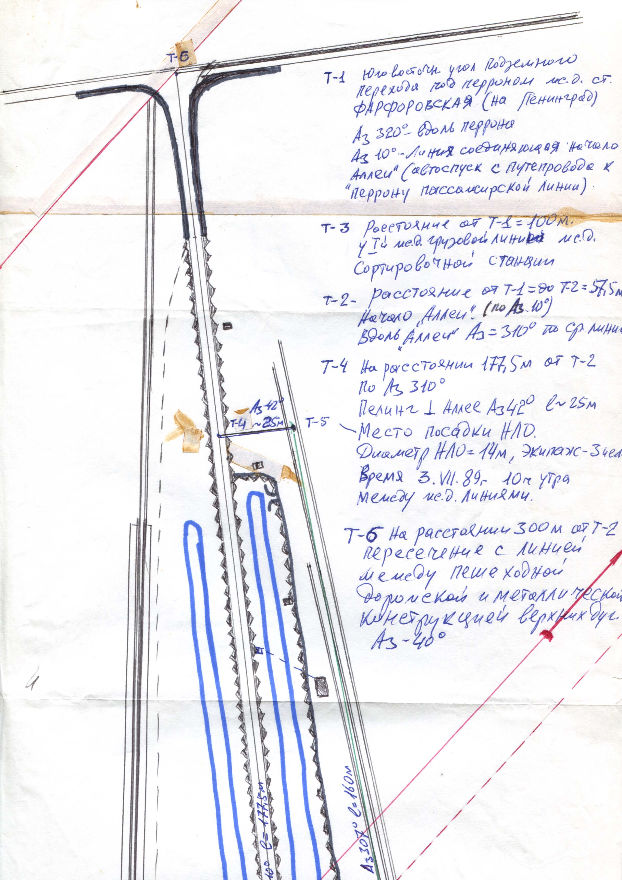 Т-6
Т-1 Юговосточн угол подземного
перехода под перроном ж.д. ст.
ФАРФОРОВСКАЯ (на Ленинград)
Аз 320° вдоль перрона
Аз 10° - Линия соединяющая начало
Аллеи" (автоспуск с путепровода к
"перрону пассажирской линии).
Т-3 Расстояние от Т-1 = 100 м.
у I й ж.д. грузовой линии ж.д.
Сортировочной станции
Т-2- расстояние от Т-1 = до Т-2 = 57,5м
Начало "Аллеи" (по Аз 10°)
Вдоль "Аллеи" Аз = 310° по ср. линии
Т-4 На расстоянии 177,5м от Т-2
по Аз 310°
Пеленг ⊥ Аллее Аз 42° l~25м
Аз 42°
Т-4 ~25м
Т-5
Место посадки НЛО.
Диаметр НЛО = 14м, Экипаж - 3 чел
Время 3.VII.89г 10ч утра
между ж.д. линиями.
Т-6 На расстоянии 300м от Т-2
пересечение с линией
между пешеходной
дорожкой и металлической
конструкцией верхн
Аз - 40°
10° l = 177,5м
Аз 307° l = 160м